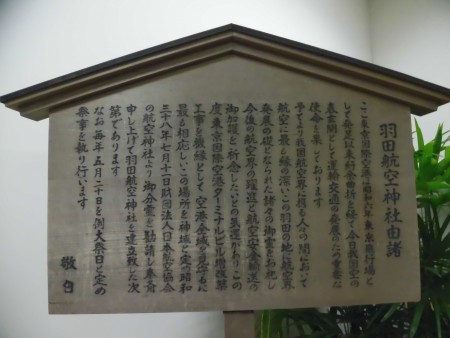 羽田航空神社由緒
ここ東京国際空港は昭和六年東京飛行場と
して発足以来紆余曲折を経て今日我国空の
表玄関として国際交通の発展のため重要な
使命を果しております
予てより我国航空界に携る人々の間において
航空に最も縁の深いこの羽田の地に航空界
発展の礎となられた諸々の御霊をお祀し
今後の航空界の躍進と航空安全輸送の
御加護を祈念したいとの気運があり この
度東京国際空港ターミナルビル増改築
工事を機縁として空港全域を見守るに
最も相応しいこの場所を神域と定め昭和
三十八年七月十一日財団法人日本航空協会
の航空神社より御分霊を勧請し奉斎
申し上げて羽田航空神社を建立致した次
第であります
なお毎年五月二十日を例大祭日と定め
祭事を執り行います
敬白